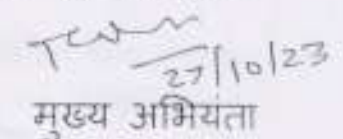 27/10/23
मुख्य अभियंता